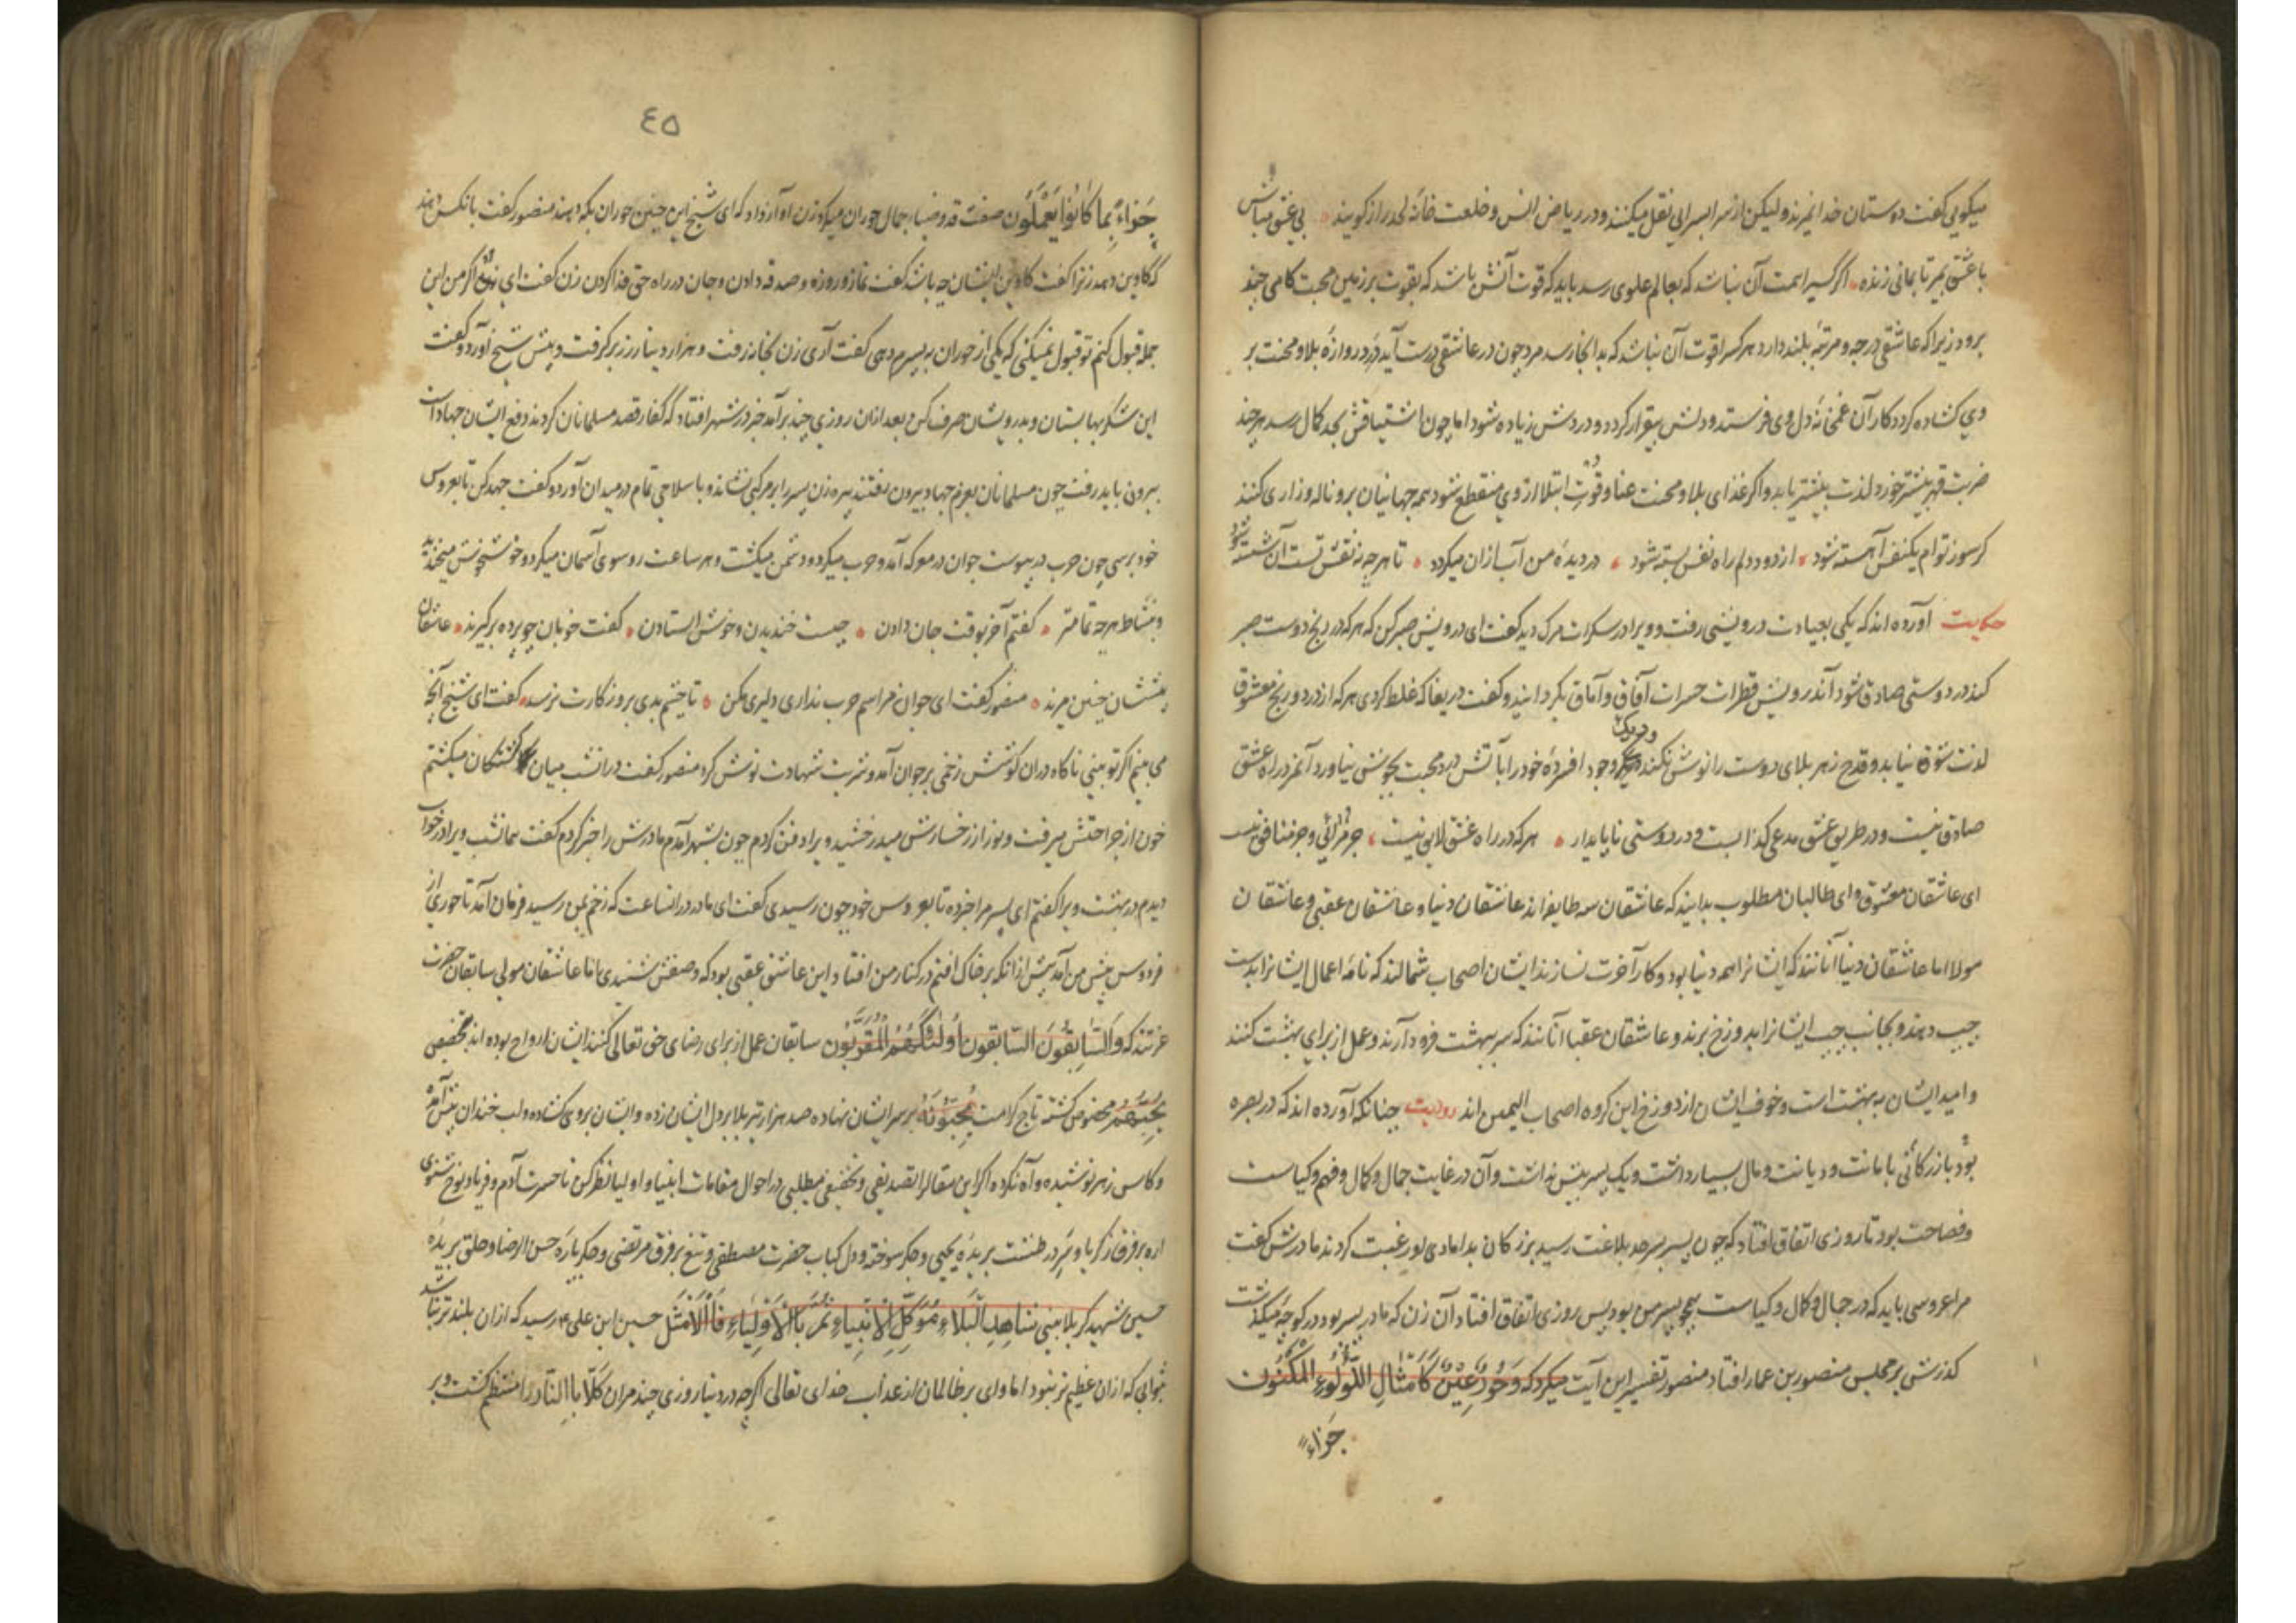 میکویی کفت دوستان خدا نمیرند ولیکن از سرا بسرایی نقل میکنند و در ریاض انس و خلعت خانهٔ لحد راز کویند بی عشق مباش
با عشق بمیر تا بمانی زنده اکر کسیرا همت آن نباشد که بعالم علوی رسد باید که قوت آتش باشد که بقوت بر زمین محبت کامی چند
برود زیرا که عاشقی درجه و مرتبهٔ بلند دارد هر کسرا قوت آن نباشد که بدانجا رسد مرد چون در عاشقی درست آید در دروازهٔ بلا و محنت بر
وی کشاده کردد کار آن غمخانهٔ دل وی فرستد و دلش بیقرار کردد و دردش زیاده شود اما چون اشتیاقش بحد کمال رسد هر چند
ضربت قهر بیشتر خورد لذت بیشتر یابد و اکر غذای بلا و محنت عنا و قوت ابتلا از وی منقطع شود همه جهانیان برو ناله و زاری کنند
کر سوز توام یکنفس آهسته شود از دود دلم راه نفس بسته شود در دیده من آب ازان میکردد تا هر چه نه نقش تست آن شسته شود
حکایت آورده اند که یکی بعیادت درویشی رفت و ویرا در سکرات مرک دید کفت ای درویش صبر کن که هر که در رنج دوست صبر
کند در دوستی صادق شود آندرویش قطرات حسرات آفاق و آماق بکردانید و کفت دریغا که غلط کردی هر که از درد و رنج معشوق
لذت شوق نیابد و قدح زهر بلای دوست را نوش نکند و دیک وجود افسردهٔ خود را بآتش درد محبت بجوش نیاورد آنمرد راه عشق
صادق نیست و در طریق عشق مدعی کذابست و در دوستی ناپایدار هر که در راه عشق لایق نیست جز مرائی و جز منافق نیست
ای عاشقان معشوق و ای طالبان مطلوب بدانید که عاشقان سه طایفه اند عاشقان دنیا و عاشقان عقبی و عاشقان
مولا اما عاشقان دنیا آنانند که ایشانرا همه دنیا بود و کار آخرت نسازند ایشان اصحاب شمالند که نامه اعمال ایشانرا بدست
چپ دهند و بجانب چپ ایشانرا بدوزخ برند و عاشقان عقبا آنانند که سر ببهشت فرود آرند و عمل از برای بهشت کنند
و امید ایشان به بهشت است و خوف ایشان از دوزخ این کروه اصحاب الیمین اند روایت چنانکه آورده اند که در بصره
بود بازرکانی با امانت و دیانت و مال بسیار داشت و یک پسر بیش نداشت و آن در غایت جمال و کمال و فهم و کیاست
و فصاحت بود تا روزی اتفاق افتاد که چون پسر بسرحد بلاغت رسید بزرکان بدامادی او رغبت کردند مادرش کفت
مرا عروسی باید که در جمال و کمال و کیاست همچو پسر من بود پس روزی اتفاق افتاد آن زن که مادر پسر بود در کوچه میکذشت
کذرش بر مجلس منصور بن عمار افتاد منصور تفسیر این آیت میکرد که وَحُورٌ عِینٌ کَأَمْثَالِ اللُّؤْلُؤِ الْمَکْنُون
جَزَاءً
٤٥
جَزَاءً بِمَا کَانُوا یَعْمَلُون صفت قد و ضیا جمال حوران میکرد زن او آواز داد که ای شیخ این چنین حوران بکه دهند منصور کفت بانکس دهند
که کاوین دهد زن را کفت کاوین ایشان چه باشد کفت نماز و روزه و صدقه دادن و جان در راه حق فدا کردن زن کفت ای شیخ اکر من این
جمله قبول کنم تو قبول میکنی که یکی از حوران به پسرم دهی کفت آری زن بخانه رفت و هزار دینار زر بر کرفت و پیش شیخ آورد و کفت
این شکربها بستان و بدرویشان صرف کن بعد ازان روزی چند برآمد خبر در شهر افتاد که کفار قصد مسلمانان کردند دفع ایشان جهاد است
بیرون باید رفت چون مسلمانان بعزم جهاد بیرون رفتند پیره زن پسر را بر مرکبی نشاند و با سلاحی تمام در میدان آورد و کفت جهد کن تا بعروس
خود برسی چون حرب در پیوست جوان در معرکه آمد و حرب میکرد و دشمن میکشت و هر ساعت روسوی آسمان میکرد و خوش خوش میخندید
و بنشاط هر چه تمامتر کفتم آخر بوقت جان دادن چیست خندیدن و خوش استادن کفت خوبان چو پرده بر کیرند عاشقان
پیششان چنین میرند منصور کفت ای جوان مراسم حرب نداری دلیری مکن تا چشم بدی بروزکارت نرسد کفت ای شیخ آنچه
می بینم اکر تو بینی ناکاه دران کوشش زخمی بر جوان آمد و شربت شهادت نوش کرد منصور کفت درانشب میان کشتکان میکشتم
خون از جراحتش میرفت و نور از رخسارش میدرخشید ویرا دفن کردم چون بشهر آمدم مادرش را خبر کردم کفت همانشب ویرا در خواب
دیدم در بهشت ویرا کفتم ای پسر مرا خبر ده تا بعروس خود چون رسیدی کفت ای مادر درانساعت که زخم بمن رسید فرمان آمد تا حوری از
فردوس پیش من آمد پیش ازانکه بر خاک افتم در کنار من افتاد این عاشق عقبی بود که وصفش شنیدی اما عاشقان مولی سابقان حضرت
عزتند که وَالسَّابِقُونَ السَّابِقُونَ أُولَئِكَ هُمُ الْمُقَرَّبُون سابقان عمل از برای رضای حق تعالی کنند ایشان ارواح بوده اند بتخصیص
یُحِبُّهُمْ مخصوص کشته تاج کرامت یُحِبُّونَهُ بر سر ایشان نهاده صد هزار تیر بلا بر دل ایشان زده و ایشان بروی کشاده و لب خندان پیش آمده
و کاس زهر نوشیده و آه نکرده اکر این مقاله را تصدیقی و تحقیقی میطلبی در احوال مقامات انبیا و اولیا نظر کن تا حسرت آدم و فریاد نوح شنوی
اره بر فرق زکریا و سر در طشت بریدهٔ یحیی و جکر سوخته و دل کباب حضرت مصطفی و تیغ بر فرق مرتضی و جکر پارهٔ حسن الرضا و حلق بریدهٔ
حسین شهید کربلا بینی حسین ابن علی ع رسید که ازان بلندتر نباشد
بثوابی که ازان عظیم تر نبود اما وای بر ظالمان از عذاب خدای تعالی اکرچه در دنیا روزی چند